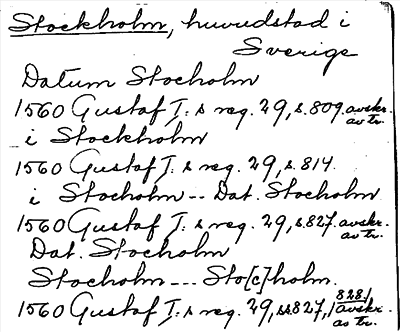 Stockholm, huvudstad i
Sverige
Datum Stocholm
1560 Gustaf I:s reg. 29, s. 809. avskr. av tr.
i Stockholm
1560 Gustaf I:s reg. 29, s. 814.
i Stocholm -- Dat. Stocholm
1560 Gustaf I:s reg. 29, s. 827. avskr. av tr.
Dat. Stocholm
Stocholm --- Sto[c]holm.
1560 Gustaf I:s reg. 29, ss. 827, 828 / avskr. av tr.